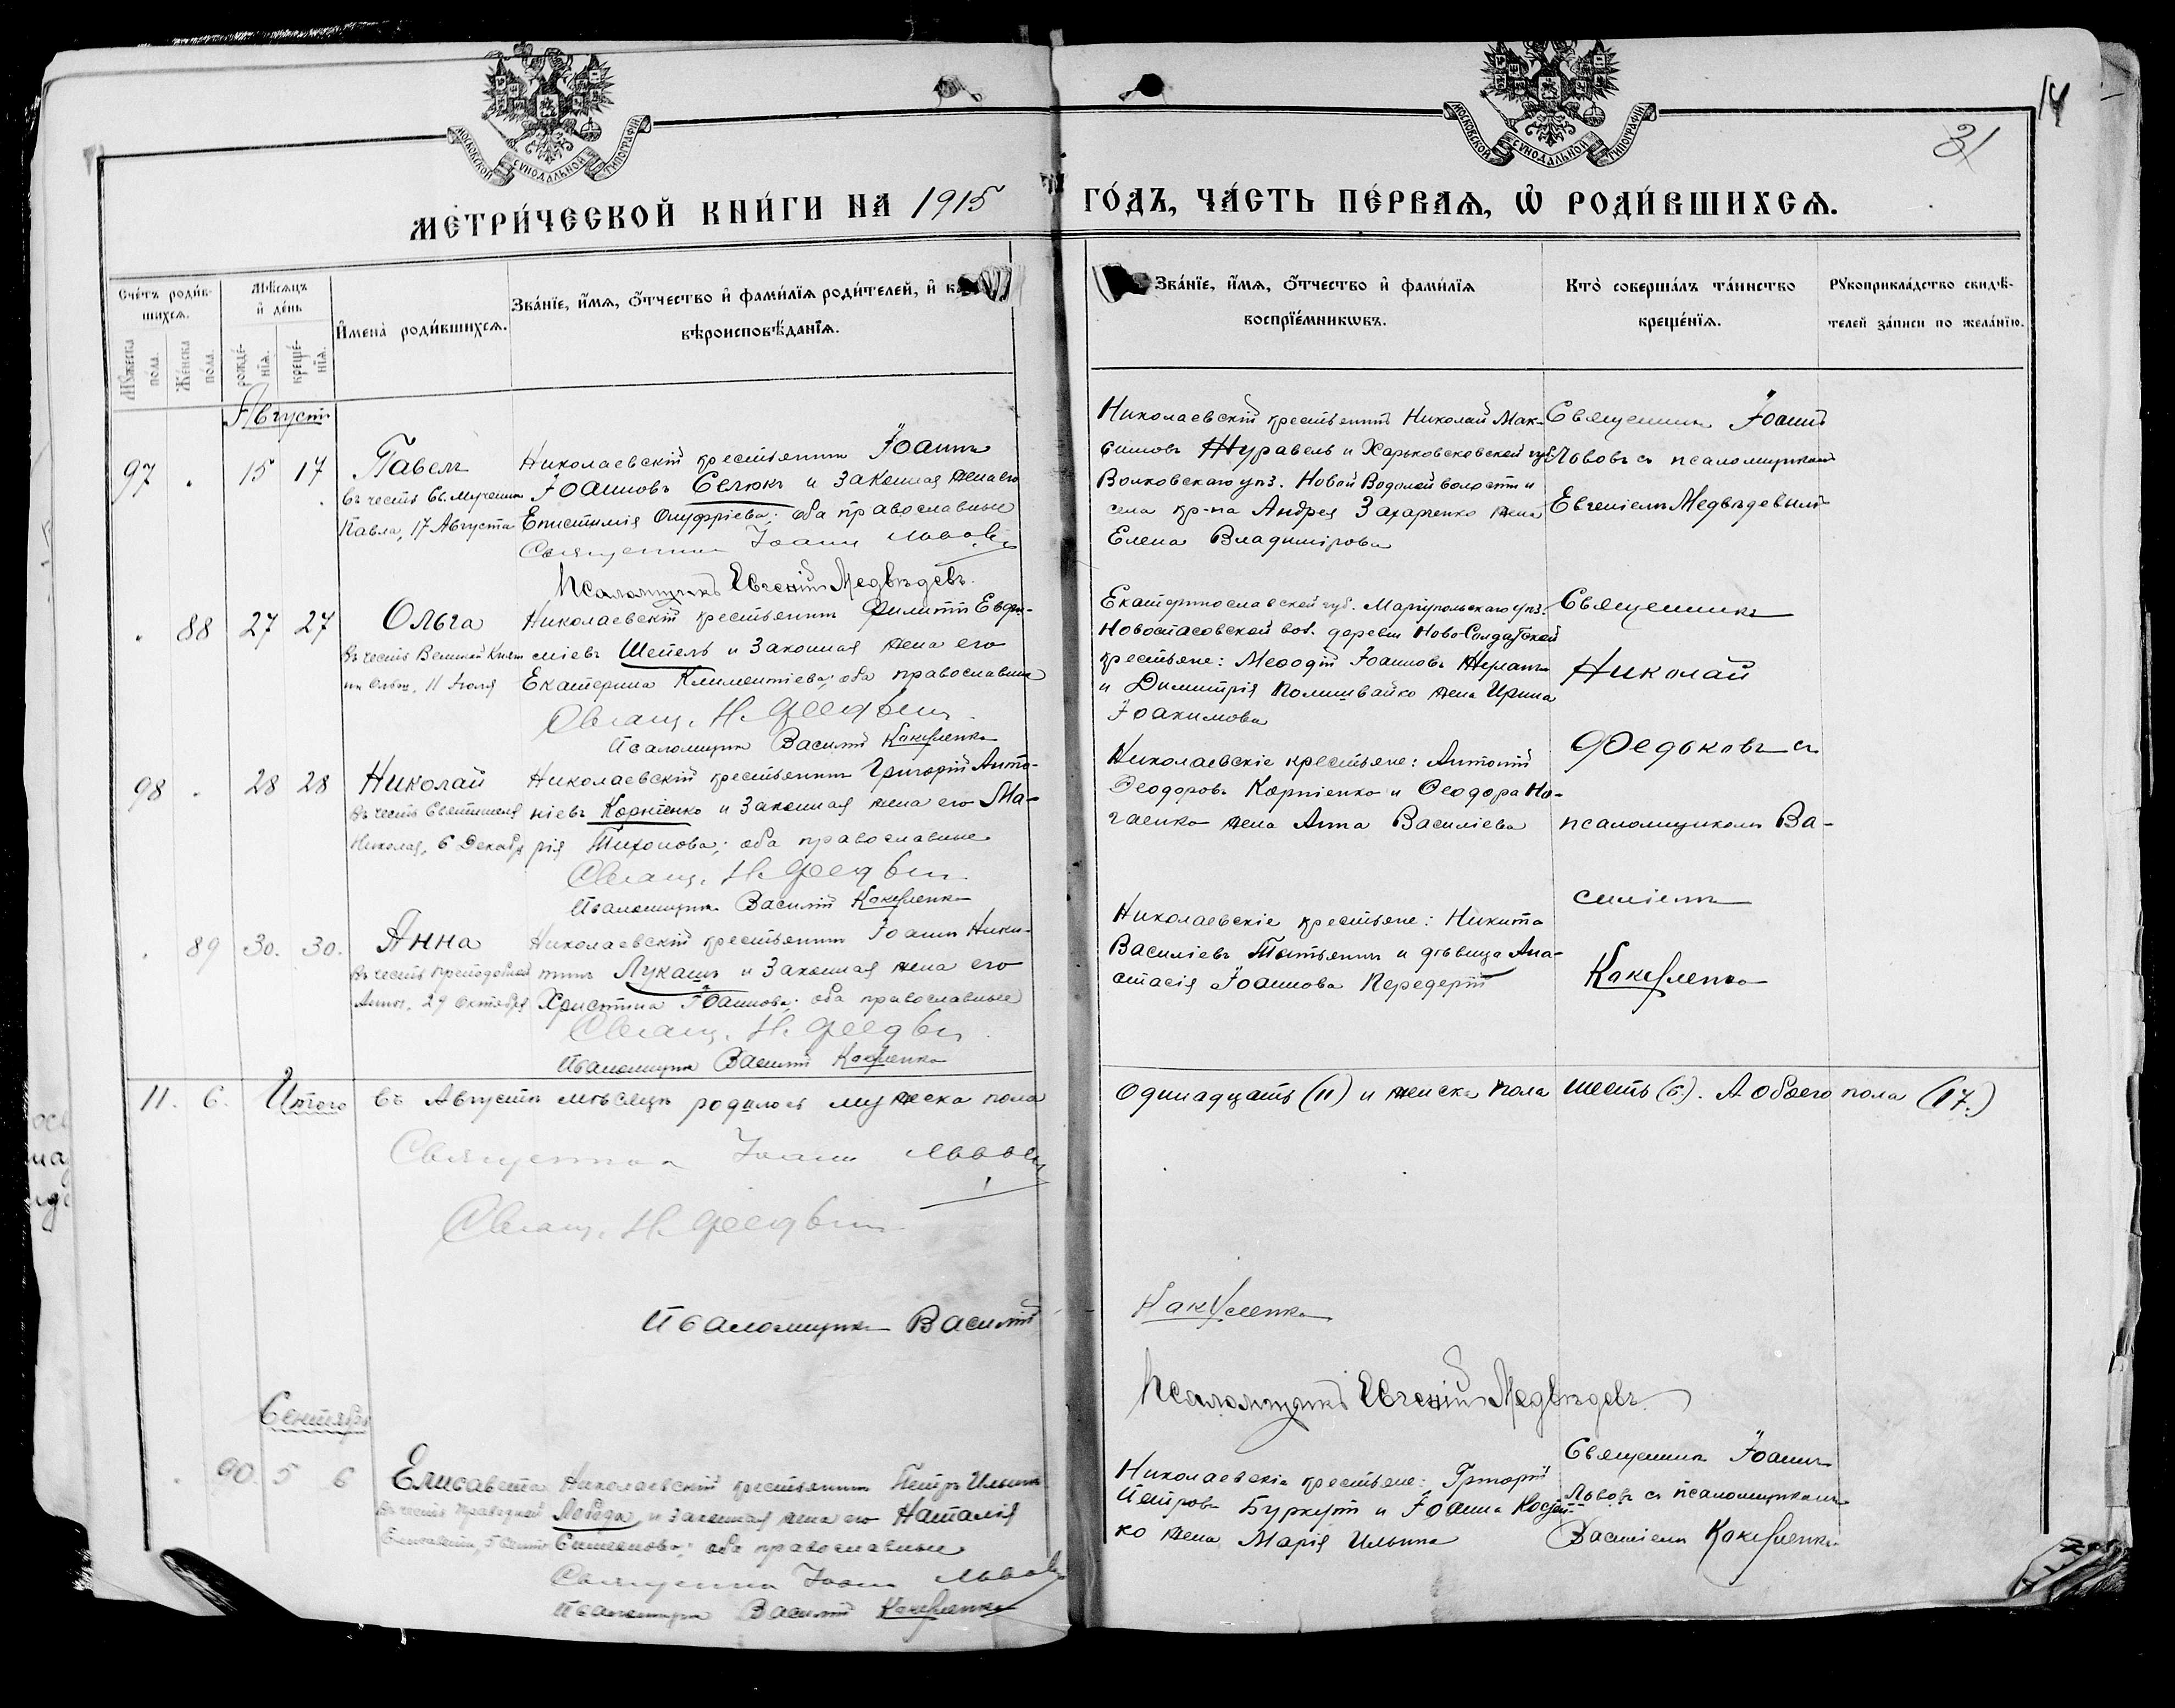 МОСКОВСКОЙ СѴНОДАЛЬНОЙ ТИПОГРАФІИ
МОСКОВСКОЙ СѴНОДАЛЬНОЙ ТИПОГРАФІИ
14
31
МЕТРИ́ЧЕСКОЙ КНИ́ГИ НА 1915 ГО́ДЪ, ЧА́СТЬ ПЕ́РВАѦ, Ѡ҆ РОДИ́ВШИХСѦ.
Сче́тъ роди́в-
шихсѧ.
Мꙋжеска по́ла.
Же́нска по́ла.
Мѣ́сѧцъ
и҆ де́нь
рожде́-
нїѧ.
креще́-
нїѧ.
И҆мена̀ роди́вшихсѧ.
Зва́нїе, и҆́мѧ, о҆́тчество и҆ фами́лїѧ роди́телей, и҆
вѣроисповѣ́данїѧ.
Зва́нїе, и҆́мѧ, о҆́тчество и҆ фами́лїѧ
воспрїе́мникѡвъ.
Кто̀ соверша́лъ та́инство
креще́нїѧ.
Рꙋкоприкла́дство свидѣ́-
телей за́писи по жела́нїю.
Августъ
97 . 15 17 Павелъ
въ честь Св. Мученика
Павла, 17 Августа
Николаевскій крестьянинъ Іоаннъ
Іоанновъ Селюкъ и законная жена его
Епистимія Онуфріева; оба православные
Священникъ Іоаннъ Львовъ
Псаломщикъ Евгеній Медвѣдевъ.
Николаевскій крестьянинъ Николай Мак-
симовъ Журавель и Харьковсковской губ.
Волковскаго уѣз. Новой Водолаи волости и
села кр-на Андрея Захарченко жена
Елена Владимірова
Священникъ Іоаннъ
Львовъ съ псаломщикомъ
Евгеніемъ Медвѣдевымъ
. 88 27 27 Ольга
въ честь Великой Княги-
ни Ольги, 11 Іюля
Николаевскій крестьянинъ Филиппъ Евфи-
міевъ Шепель и законная жена его
Екатерина Климентіева; оба православные
Свящ. Н. Федьковъ
Псаломщикъ Василій Какуленко
Екатеринославской губ. Маріупольскаго уѣз.
Новоспасовской вол. деревни Ново-Солдатской
крестьяне: Меѳодій Іоанновъ
и Димитрія жена Ирина
Іоакимова
Священникъ
Николай
Федьковъ съ
псаломщикомъ Ва-
силіемъ
Какуленко
98 . 28 28 Николай
въ честь Святителя
Николая, 6 Декабря
Николаевскій крестьянинъ Григорій Анто-
ніевъ Корніенко и законная жена его Ма-
рія Тихонова; оба православные
Свящ. Н. Федьковъ
Псаломщикъ Василій Какуленко
Николаевскіе крестьяне: Антоній
Ѳеодоровъ Корніенко и Ѳеодора Но-
гаенко жена Анна Василіева
. 89 30. 30. Анна
въ честь преподобной
Анны, 29 Октября
Николаевскій крестьянинъ Іоаннъ Ники-
тинъ Лукашъ и законная жена его
Христина Іоаннова; оба православные
Свящ. Н. Федьковъ
Псаломщикъ Василій Какуленко
Николаевскіе крестьяне: Никита
Василіевъ и дѣвица Ана-
стасія Іоаннова Передерій
11. 6. Итого въ Августѣ мѣсяцѣ родилось мужеска пола одинадцать (11) и женска пола шесть (6). А обоего пола (17.)
Священникъ Іоаннъ Львовъ
Свящ. Н. Федьковъ
Псаломщикъ Василій Какуленко
Псаломщикъ Евгеній Медвѣдевъ.
Сентябрь
. 90. 5 6 Елисавета
въ честь праведной
Елисаветы, 5 Сент.
Николаевскій крестьянинъ Петръ Ильинъ
Лобода и законная жена его Наталія
Симеонова; оба православные
Священникъ Іоаннъ Львовъ
Псаломщикъ Василій Какуленко
Николаевскіе крестьяне: Григорій
Петровъ Буркутъ и Іоанна
ко жена Марія Ильина
Священникъ Іоаннъ
Львовъ съ псаломщикомъ
Василіемъ Какуленко